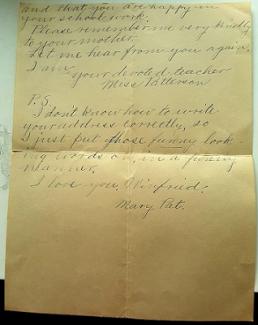 and that you are happy in
your school work.
Please remember me very kindly
to your mother.
Let me hear from you again.
I am
your devoted teacher
Miss Patterson
P.S.
I don't know how to write
your address correctly, so
I just put those funny look-
ing words on, in a funny
manner.
I love you, Winfried.
Mary Pat.